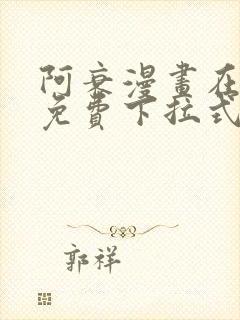 阿衰漫畫在
免費下拉式
郭祥